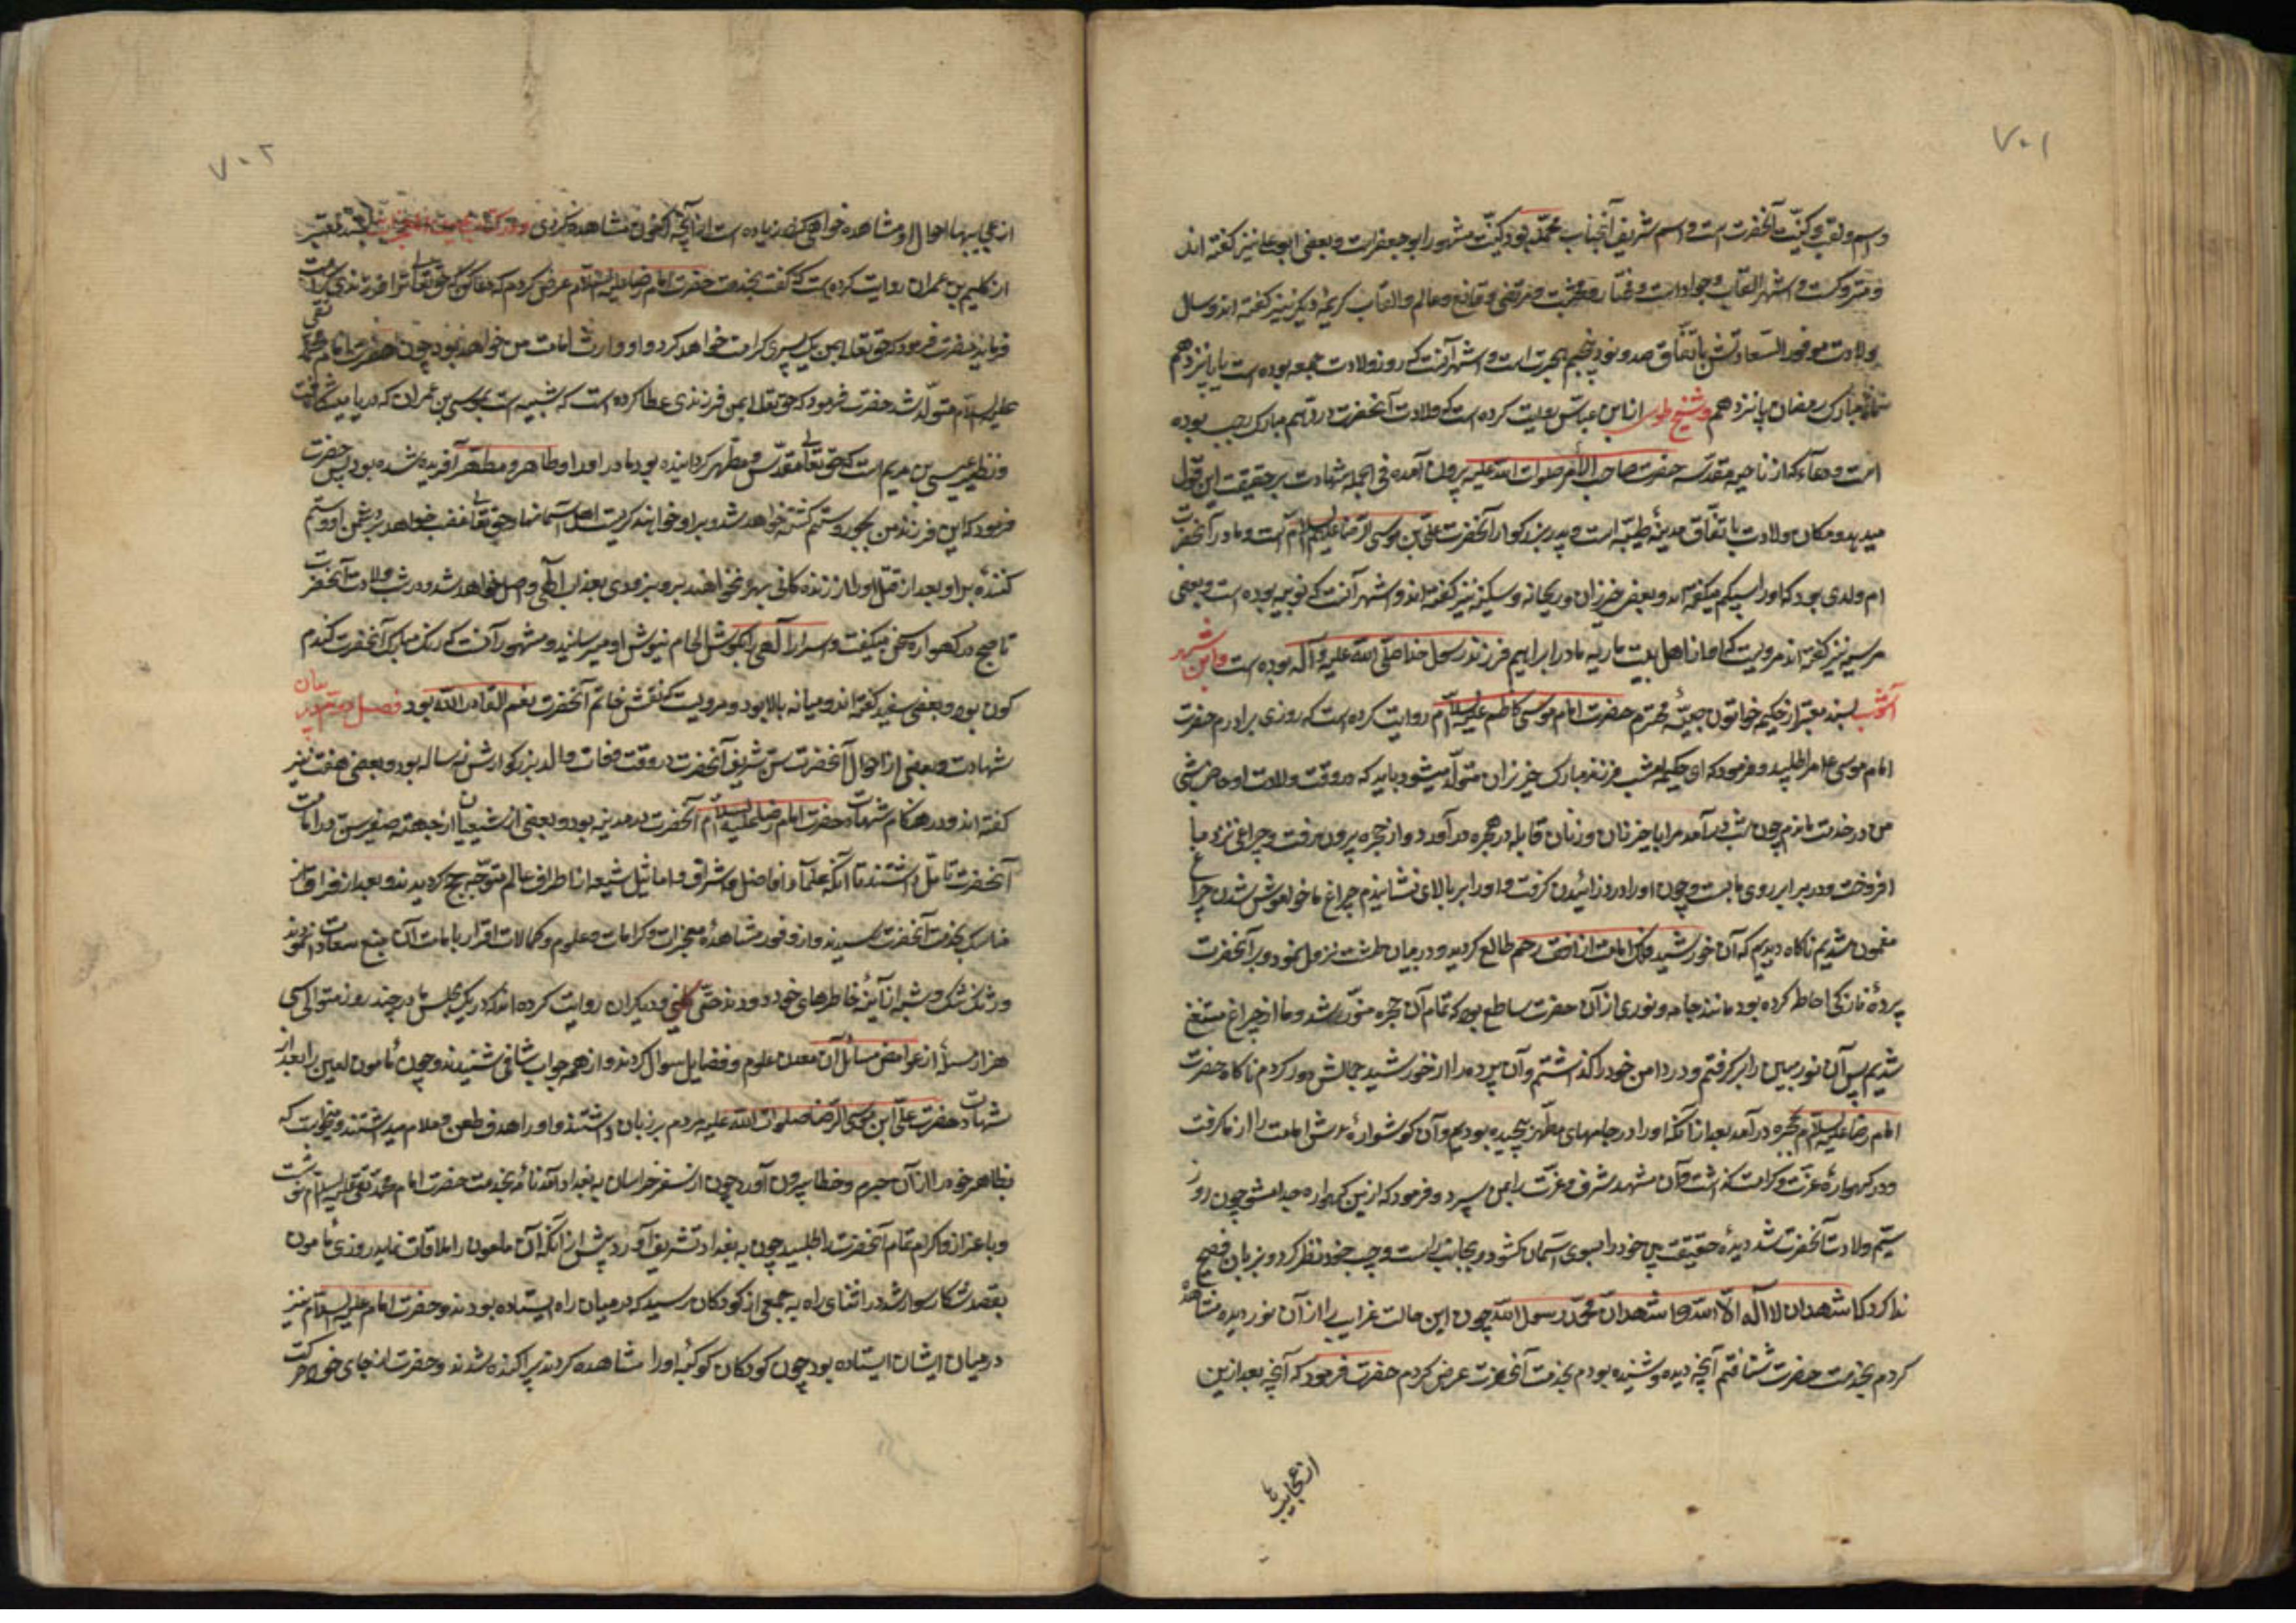 ۷۰۱
و اسم و لقب و کنیت آنحضرت است و اسم شریف آنجناب محمد بود و کنیت مشهور ابو جعفر است و بعضی ابو علی نیز گفته اند
و متروکست و اشهر القاب جواد است و مختار و منتجب و مرتضی و قانع و عالم و القاب کریمهٔ دیگر نیز گفته اند و سال
ولادت موفور السعادتش باتفاق صد و نود و پنجم هجرت است و اشهر آنست که روز ولادت جمعه بوده است یا پانزدهم
ماه مبارک رمضان یا نوزدهم و شیخ طوسی از ابن عباس روایت کرده است که ولادت آنحضرت در دهم ماه مبارک رجب بوده
است و دعاء که از ناحیه مقدسه حضرت صاحب الأمر صلوات الله علیه بیرون آمده فی الجمله شهادت بر حقیقت این قول
میدهد و مکان ولادت باتفاق مدینهٔ طیبه است و پدر بزرکوار آنحضرت علی بن موسی الرضا علیهم السلام است و مادر آنحضرت
ام ولدی بود که او را سبیکه میگفته اند و بعضی خیزران و ریحانه و سکینه نیز گفته اند و اشهر آنست که نوبیه بوده است و بعضی
مرسیه نیز گفته اند مرویست که او از اهل بیت ماریه مادر ابراهیم فرزند رسول خدا صلی الله علیه و آله بوده است و ابن شهر
آشوب بسند معتبر از حکیمه خواتون صبیهٔ محترم حضرت امام موسی کاظم علیه السلام روایت کرده است که روزی برادرم حضرت
امام موسی ع مرا طلبید و فرمود که ای حکیمه امشب فرزند مبارک خیزران متولد میشود باید که در وقت ولادت او حاضر شی
من در خدمت ماندم چون شب درآمد مرا با خیزران و زنان قابله در حجره در آورد و از حجره بیرون رفت و چراغی نزد ما
افروخت و در بر ابر روی ما بست و چون او را درد زائیدن گرفت و او را بر بالای نشاندیم چراغ ما خواموش شد از چراغ
مغموم شدیم ناگاه دیدیم که آن خورشید فلک امامت از افق رحم طالع گردید و در میان طشت نزول نمود و بر آنحضرت
پردهٔ نازکی احاطه کرده بود مانند جامه و نوری از آن حضرت ساطع بود که تمام آن حجره منور شد و ما از چراغ مستغنی
شدیم پس آن نور مبین را برگرفتم و در دامن خود گذاشتم و آن پرده را از خورشید جمالش دور کردم ناگاه حضرت
امام رضا علیه السلام بحجره درآمد بعد از آنکه او را در جامهای مطهر پیچیده بودیم و آن گوشوارهٔ عرش امامت را از ما گرفت
و در گهوارهٔ عزت و کرامت گذاشت و آن مشهد شرف و عزت را بمن سپرد و فرمود که از این گهواره جدا مشو چون روز
سیم ولادت آنحضرت شد دیدهٔ حقیقت بین خود را بسوی آسمان گشود و بجانب راست و چپ خود نظر کرد و بزبان فصیح
ندا کرد که اشهد ان لا اله الا الله و اشهد ان محمد رسول الله چون این حالت غرایب را از آن نور دیده مشاهده
کردم بخدمت حضرت شتافتم آنچه دیده و شنیده بودم بخدمت آنحضرت عرض کردم حضرت فرمود که آنچه بعد از این
از عجایبها
۷۰۲
از عجایبها احوال او مشاهده خواهی کرد زیاده است از آنچه اکنون مشاهده کردی بسند معتبر
از کلیم بن عمران روایت کرده است که گفت بخدمت حضرت امام رضا علیه السلام عرض کردم که دعا کن که حق تعالی ترا فرزندی کرامت
فرماید حضرت فرمود که حق تعالی بمن یک پسری کرامت خواهد کرد و او وارث امامت من خواهد بود چون حضرت امام محمد تقی
علیه السلام متولد شد حضرت فرمود که حق تعالی بمن فرزندی عطا کرده است که شبیه است بموسی بن عمران که دریا میشکافت
و نظیر عیسی بن مریم است که حق تعالی مقدس و مطهر گردانیده بود مادر او را و طاهر و مطهر آفریده شده بود پس حضرت
فرمود که این فرزند من بجور و ستم کشته خواهد شد و بر او خواهند گریست اهل آسمانها و حق تعالی غضب خواهد بر دشمن او و ستم
کنندهٔ بر او و بعد از قتل او از زندگانی بهره نخواهند برد و بزودی بعذاب الهی واصل خواهد شد و در شب ولادت آنحضرت
تا صبح در گهواره سخن میگفت و اسرار الهی بگوش الهام نیوش او میرسانید و مشهور آنست که رنک مبارک آنحضرت گندم
گون بود و بعضی سفید گفته اند و میانه بالا بود و مرویست که نقش خاتم آنحضرت نعم القادر الله بود فصل دویم در بیان
شهادت و بعضی از احوال آنحضرت سن شریف آنحضرت در وقت وفات والد بزرکوارش نه ساله بود و بعضی هفت نیز
گفته اند و در هنگام شهادت حضرت امام رضا علیه السلام آنحضرت در مدینه بود و بعضی از شیعیان از جهته صغر سن در امامت
آنحضرت تامل داشتند تا آنکه علماء و افاضل و اشراف و اماثل شیعه از اطراف عالم متوجه حج گردیدند و بعد از فراغ از
مناسک بخدمت آنحضرت رسیدند و از وفور مشاهدهٔ معجزات و کرامات و علوم و کمالات اقرار بامامت آن منبع سعادت نمودند
و زنک شک و شبه از آینهٔ خاطرهای خود زدودند حتی کلینی و دیگران روایت کرده اند که در یک مجلس یا در چند روز متوالی سی
هزار مسئله از غوامض مسائل آن معدن علوم و فضایل سوال کردند و از همه جواب شافی شنیدند و چون مأمون لعین را بعد از
شهادت حضرت علی ابن موسی الرضا صلوات الله علیه مردم بر زبان داشتند و او را هدف طعن و ملام میداشتند و میخواست که
بظاهر خود را از آن جرم و خطا بیرون آورد چون از سفر خراسان به بغداد آمد نامهٔ بخدمت حضرت امام محمد تقی علیه السلام نوشت
و با عزاز و اکرام تمام آنحضرت را طلبید چون به بغداد تشریف آورد پیش از آنکه آن ملعون را ملاقات نماید روزی مأمون
بقصد شکار سوار شد در اثنای راه به جمعی از کودکان رسید که در میان راه ایستاده بودند و حضرت امام علیه السلام نیز
در میان ایشان ایستاده بود چون کودکان کوکبهٔ او را مشاهده کردند پراکنده شدند و حضرت از جای خود حرکت